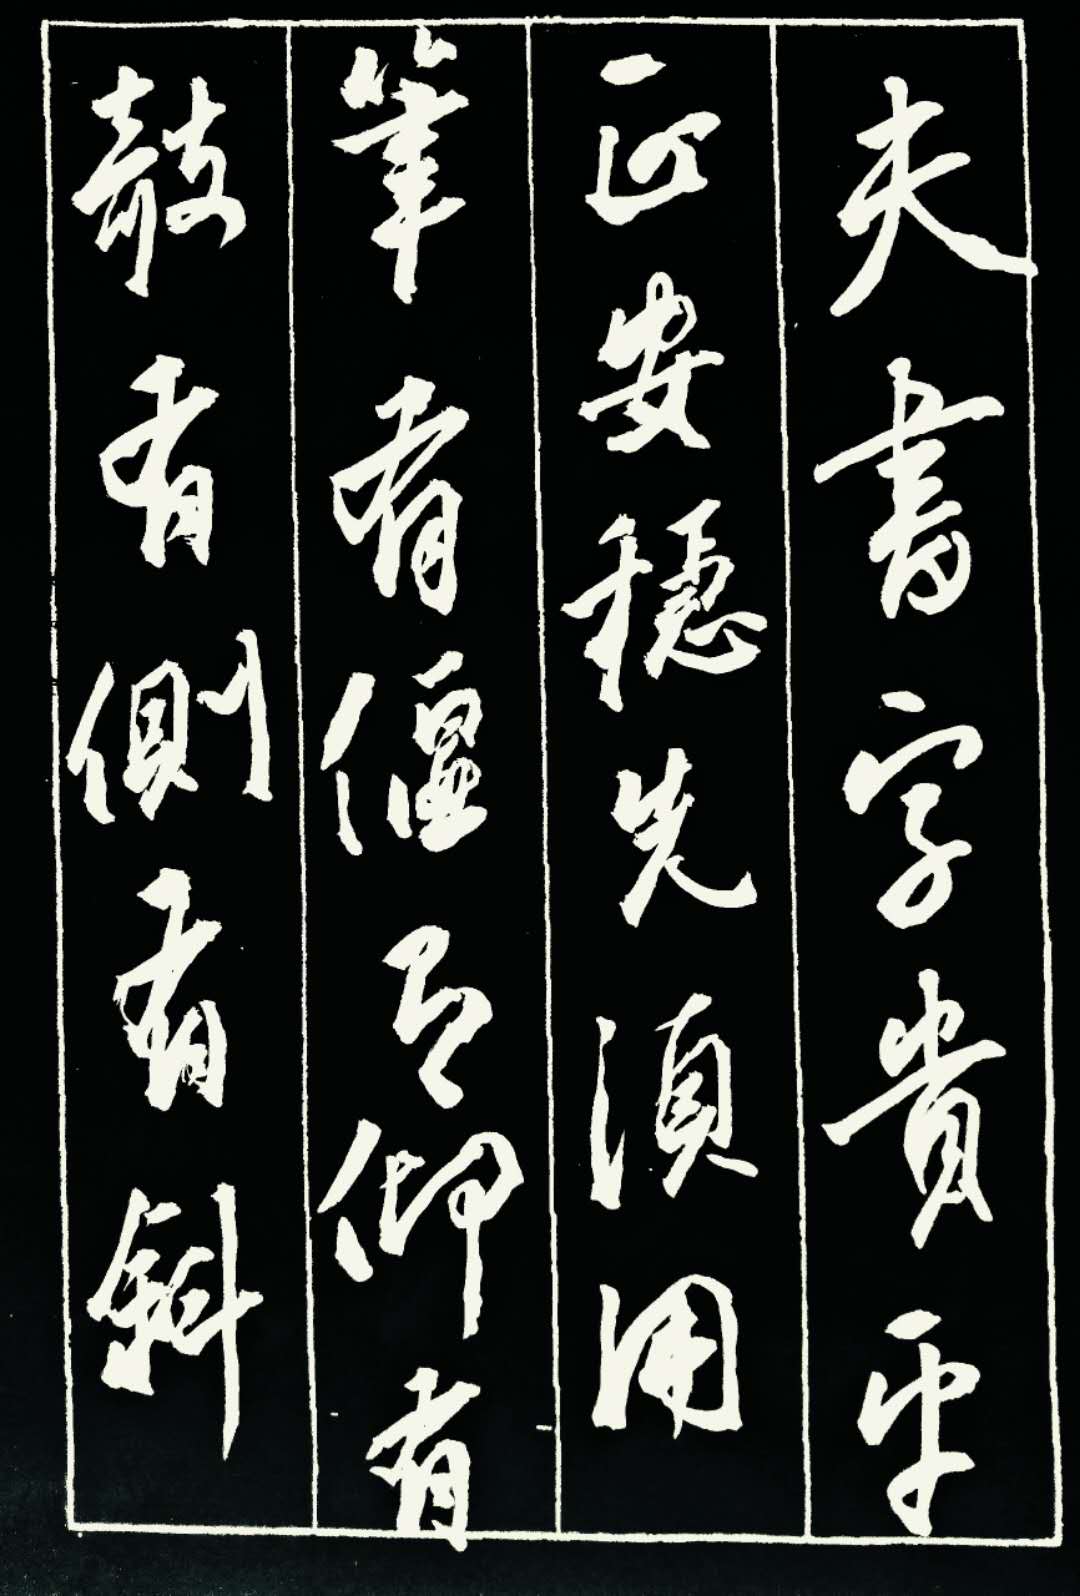 夫書字貴平
正安穩先須用
筆有偃有仰有
攲有側有斜